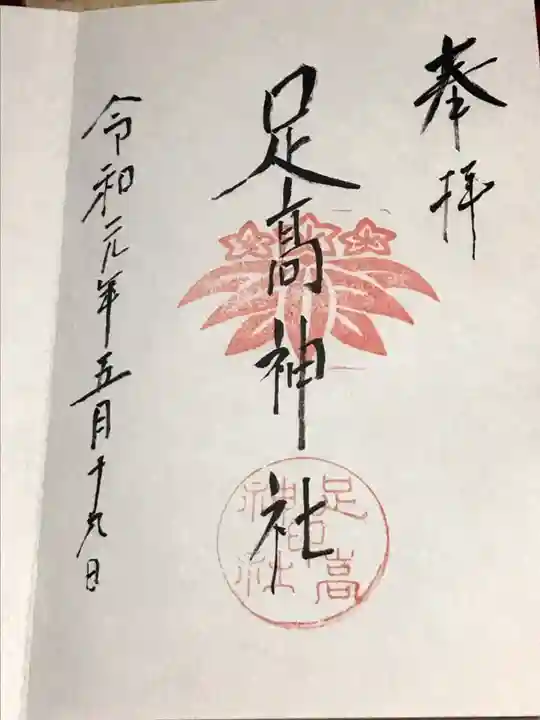 奉拝
足髙神社
足高神社印
令和元年五月十九日